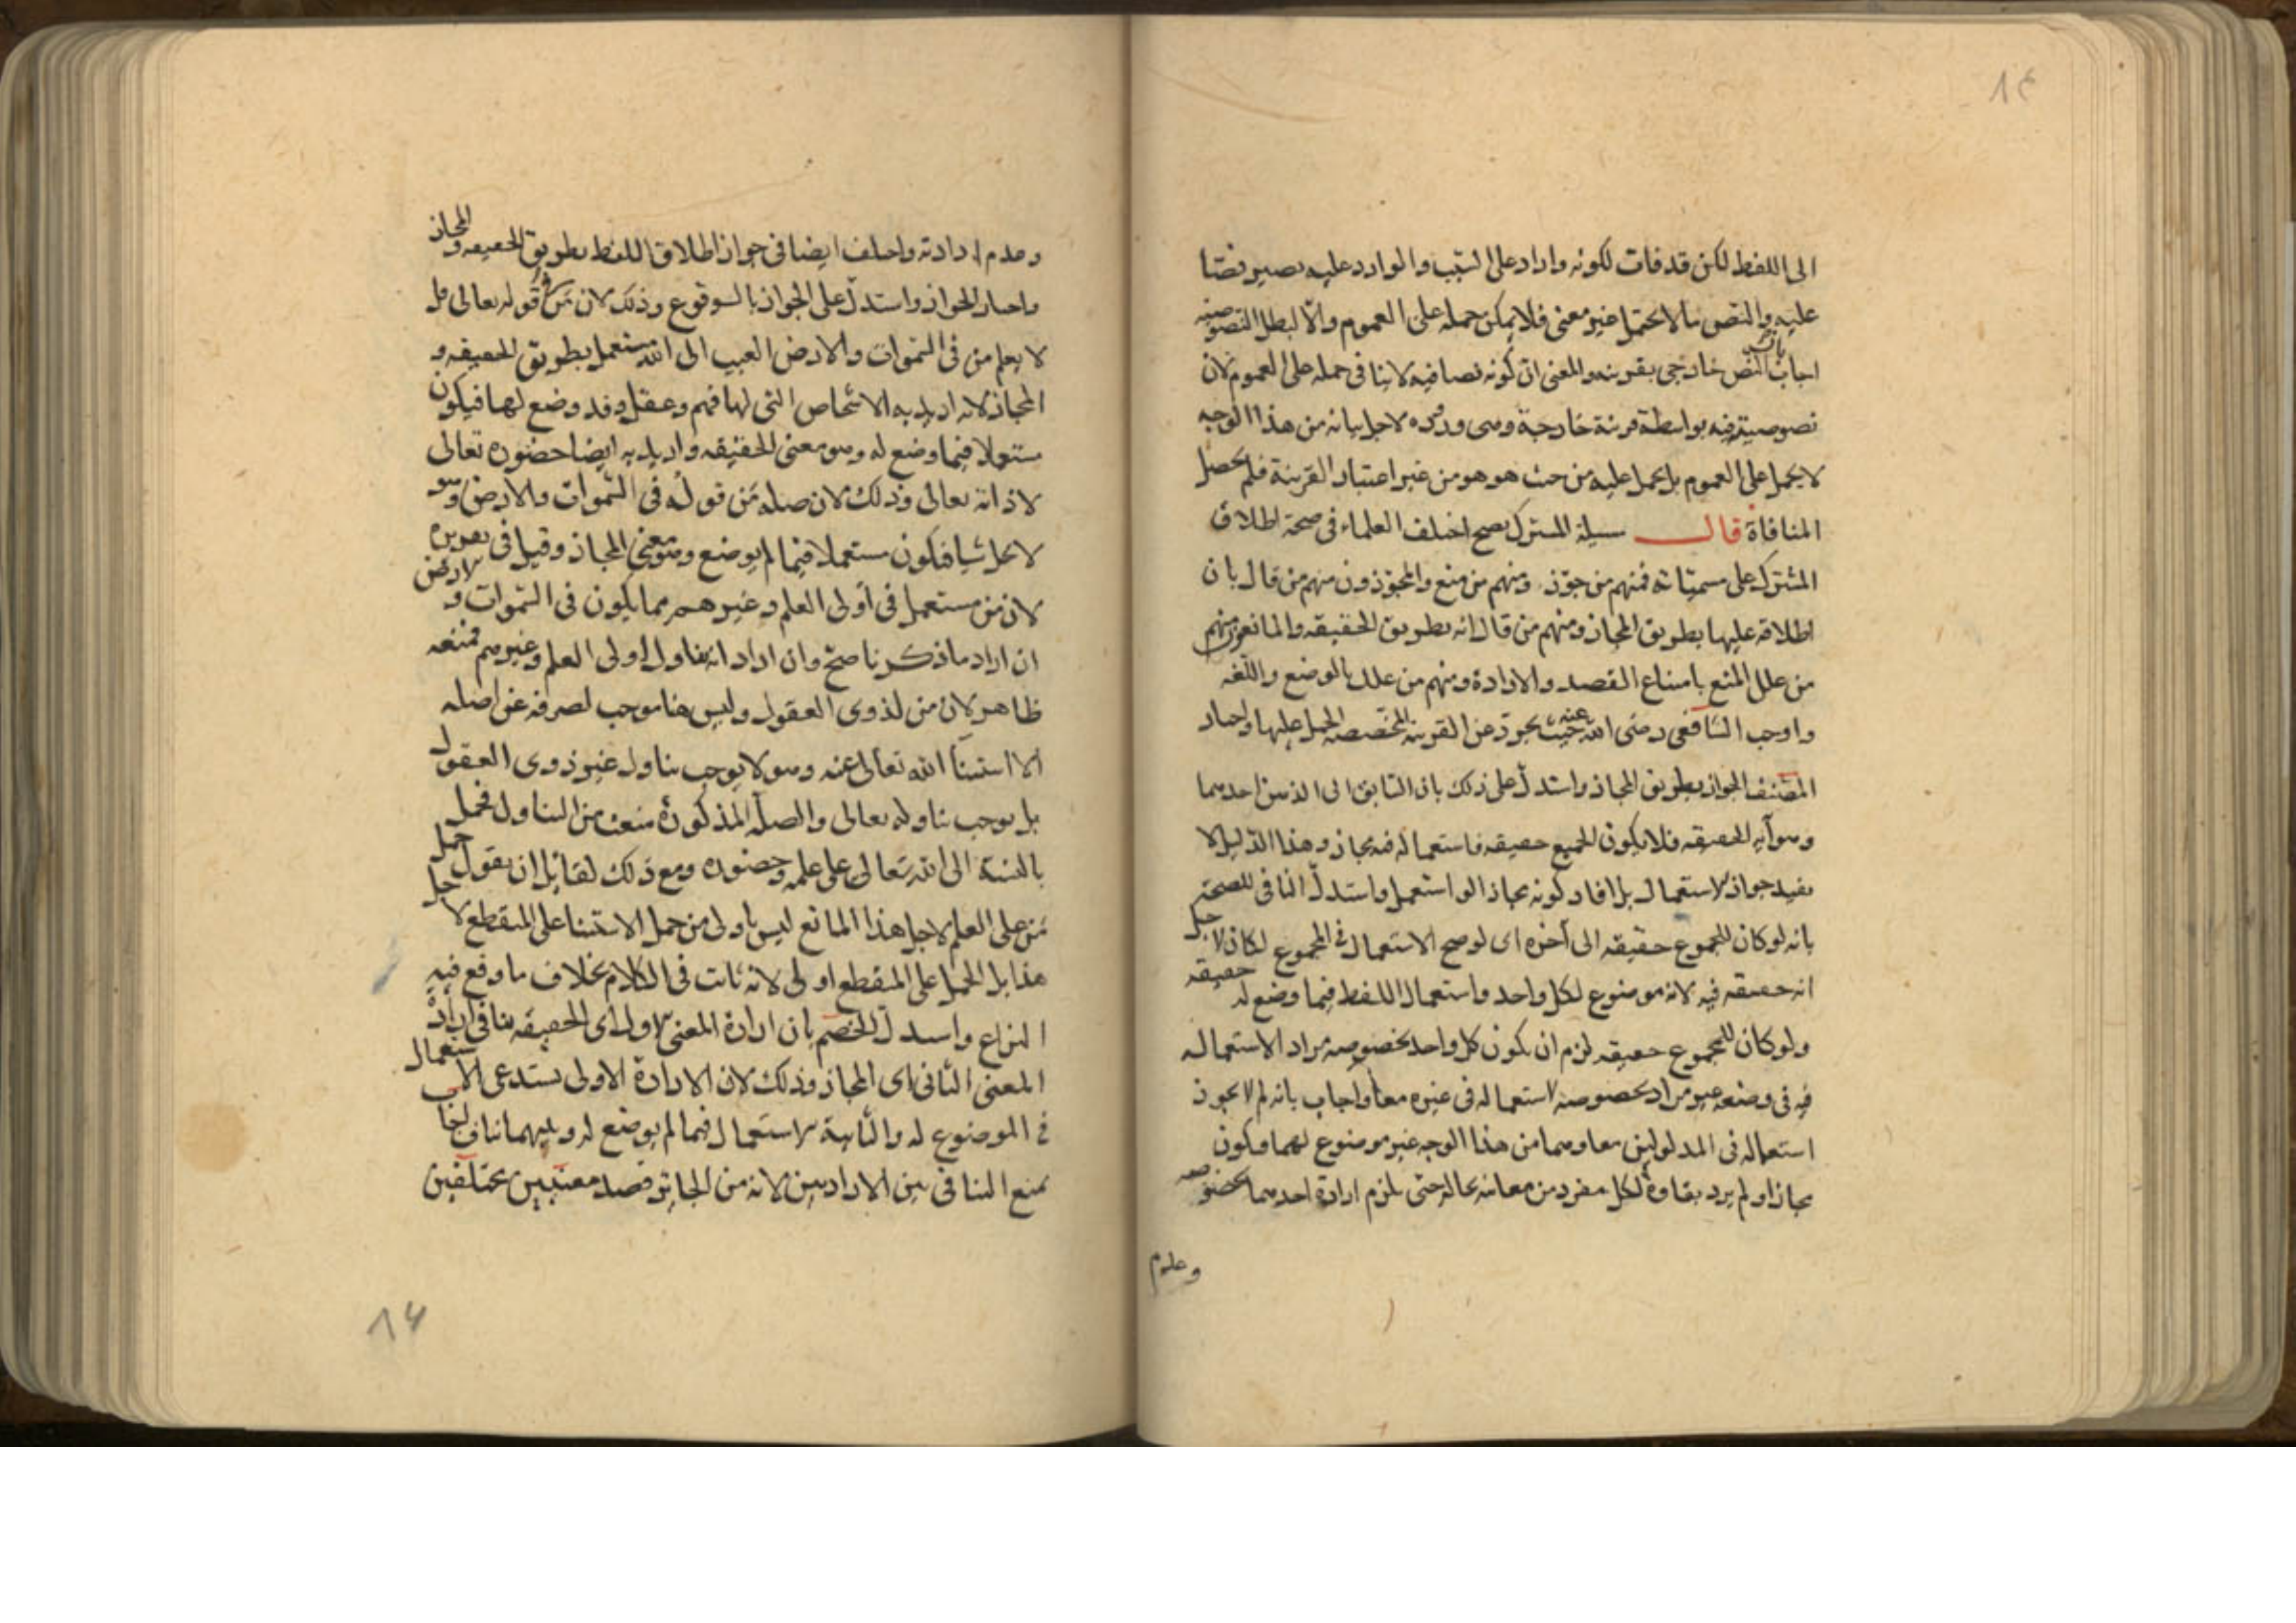 الى اللفظ لكن قد فات لكونه واردا على السبب والوارد عليه يصير نصّا
عليه والنص ما لا يحتمل غير معنى فلا يمكن حمله على العموم والّا لبطل النصوصية
اجاب بان النص خارجى بقرينة والمعنى ان كونه نصا فيه لا ينافى حمله على العموم لان
نصوصيته فيه بواسطة قرينة خارجية وهى وروده لاجل بيانه من هذا الوجه
لا يحمل على العموم بل يحمل عليه من حيث هو هو من غير اعتبار القرينة فلم يحصل
المنافاة قال مسيلة المشترك يصح اختلف العلماء فى صحة اطلاق
المشترك على مسمّياته فمنهم من جوّز ومنهم من منع والمجوّزون منهم من قال بان
اطلاقه عليها بطريق المجاز ومنهم من قال انه بطريق الحقيقه والمانعون منهم
من علل المنع بامتناع القصد والارادة ومنهم من علل بالوضع واللّغه
واوجب الشافعى رضى الله عنه حيث تجرّد عن القرينه المخصّصه الحمل عليها واختار
المصنف الجواز بطريق المجاز واستدلّ على ذلك بان السابق الى الذهن احدهما
وهو آية الحقيقه فلا يكون للجميع حقيقه فاستعماله فيه مجاز وهذا الدّليل لا
يفيد جواز الاستعمال بل افاد كونه مجازا لو استعمل واستدلّ النافى للصحة
بانه لو كان للمجموع حقيقه الى آخره اى لو صح الاستعمال فى المجموع لكان لاجل
انه حقيقه فيه لانه موضوع لكل واحد واستعمال اللفظ فيما وضع له حقيقه
ولو كان للمجموع حقيقه لزم ان يكون كل واحد بخصوصه مراد الاستعماله
فيه فى وضعه غير مراد بخصوصه لاستعماله فى غيره معا واجاب بانه لم لا يجوز
استعماله فى المدلولين معا وهما من هذا الوجه غير موضوع لهما ويكون
مجازا ولم يرد بقاوه لكل مفرد من معانيه بحاله حتى يلزم ارادة احدهما بخصوصه
وعدم
وعدم ارادته واختلف ايضا فى جواز اطلاق اللفظ بطريق الحقيقه والمجاز
واختار الجواز واستدلّ على الجواز بالوقوع وذلك لان مَن فى قوله تعالى قل
لا يعلم من فى السّموات والارض الغيب الى الله مستعمل بطريق الحقيقه و
المجاز لانه اريد به الاشخاص التى لها فهم وعقل وقد وضع لها فيكون
مستعملا فيما وضع له وهو معنى الحقيقه واريد به ايضا حضوره تعالى
لا ذاته تعالى وذلك لان صلة مَن قوله فى السّموات والارض وهو
لا يحل شيا فيكون مستعملا فيما لم يوضع وهو معنى المجاز وقيل فى تقريره
لان من مستعمل فى اولى العلم وغيرهم مما يكون فى السّموات والارض
ان اراد ما ذكرنا صحّ وان اراد انه تناول اولى العلم وغيرهم فمنعه
ظاهر لان من لذوى العقول وليس هنا موجب لصرفه عن اصله
الا استثنا الله تعالى عنه وهو لا يوجب تناول غير ذوى العقول
بل يوجب تناوله تعالى والصلة المذكورة منعت من التناول فحمل
بالنسبة الى الله تعالى على علمه وحضوره ومع ذلك لقائل ان يقول حمل
مَن على العلم لاجل هذا المانع ليس باولى من حمل الاستثنا على المنقطع لاجل
هذا بل الحمل على المنقطع اولى لانه ثابت فى الكلام بخلاف ما وقع فيه
النزاع واستدلّ الخصم بان ارادة المعنى الاول اى الحقيقه تنافى ارادة
المعنى الثانى اى المجاز وذلك لان الارادة الاولى تستدعى الاستعمال
فى الموضوع له والثانية الاستعمال فيما لم يوضع له وبينهما تناف اجاب
بمنع التنافى بين الارادتين لانه من الجائز قصد معنيين مختلفين